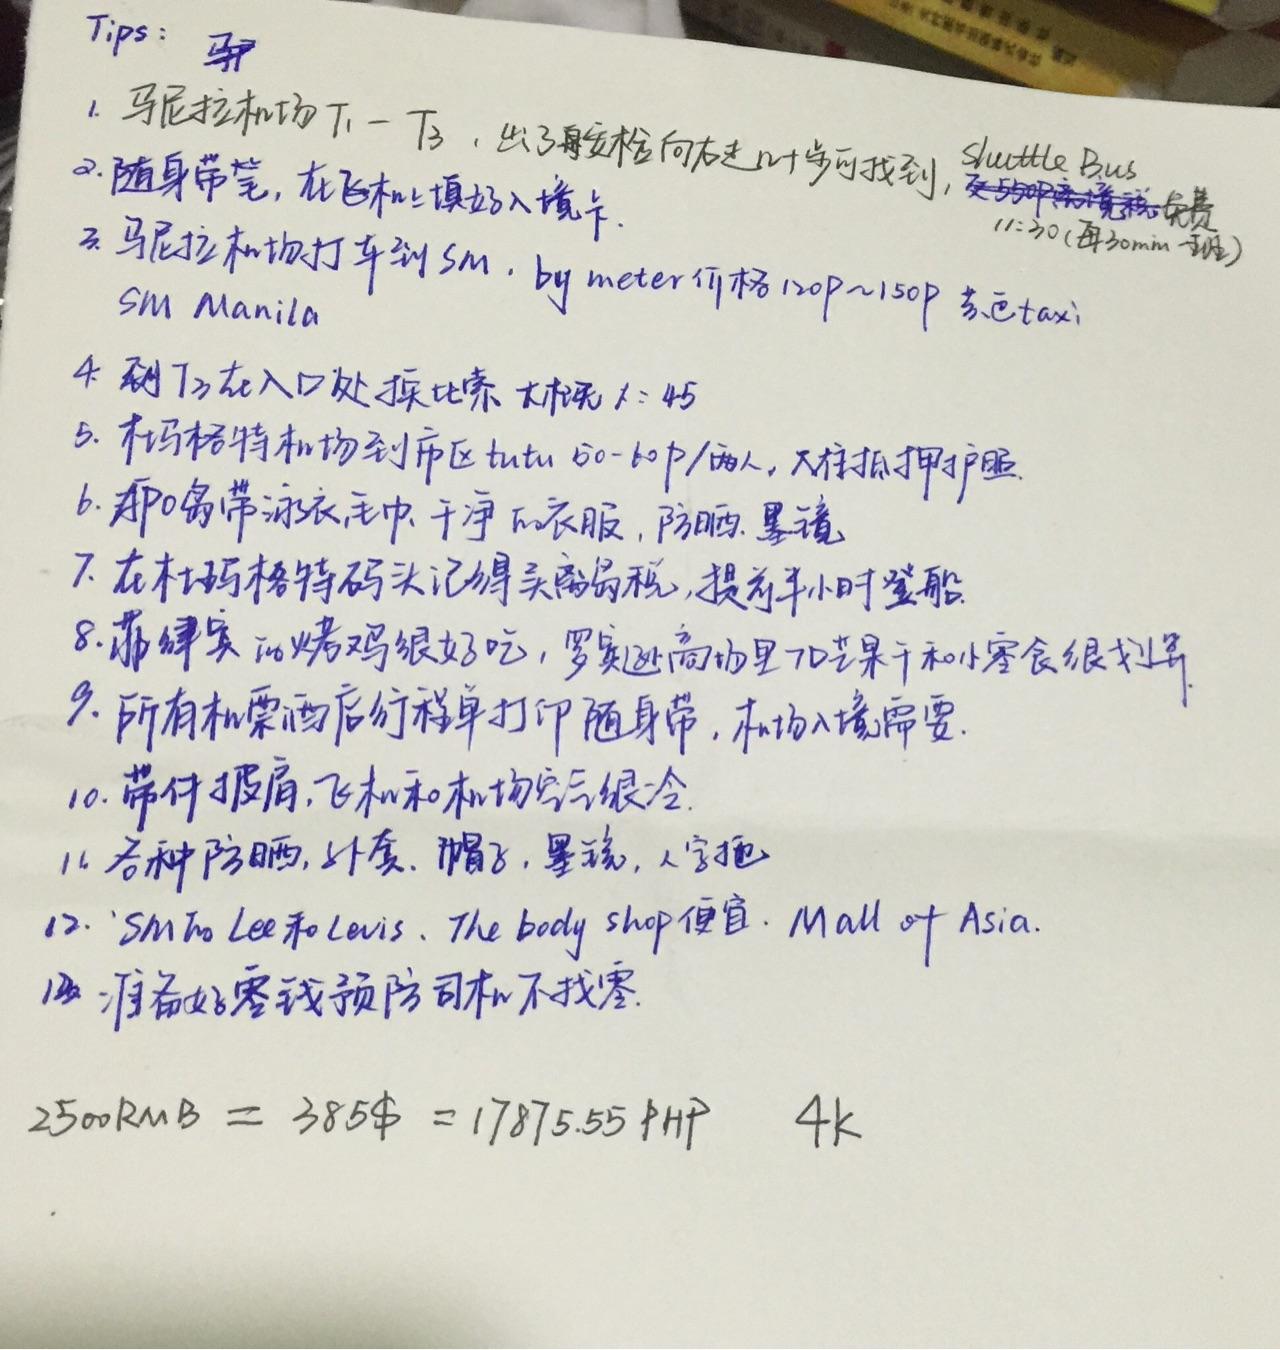 Tips:
1. 马尼拉机场T1-T3,出了安检向右走几十步可找到,Shuttle Bus
免费
11:30(每30min一班)
2. 随身带笔,在飞机上填好入境卡.
3. 马尼拉机场打车到SM, by meter价格120P~150P 黄色taxi
SM Manila
4. 到T3在入口处换比索 大概1:45
5. 杜玛格特机场到市区tutu 50-60P/两人,天柱抵押护照.
6. APO岛带泳衣,毛巾、干净的衣服,防晒.墨镜
7. 在杜玛格特码头记得买离岛税,提前半小时登船.
8. 菲律宾的烤鸡很好吃,罗宾逊商场里7D芒果干和小零食很划算.
9. 所有机票酒店行程单打印随身带,机场入境需要.
10. 带件披肩,飞机和机场空气很冷.
11. 各种防晒,外套、帽子,墨镜,人字拖
12. SM的Lee和Levis、The body shop便宜. Mall of Asia.
13. 准备好零钱预防司机不找零.
2500RMB = 385$ = 17875.55PHP 4K